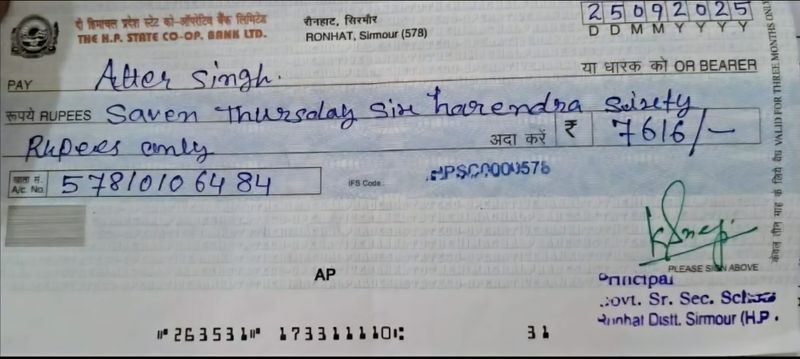 दी हिमाचल प्रदेश स्टेट को-ऑपरेटिव बैंक लिमिटेड
THE H.P. STATE CO-OP. BANK LTD.
रौनहाट, सिरमौर
RONHAT, Sirmour (578)
25092025
D D M M Y Y Y Y
PAY Atter Singh.
या धारक को OR BEARER
रूपये RUPEES Saven Thursday Six harendra Sixety
Rupees only
अदा करें ₹ 7616/-
खाता सं.
A/c. No. 57810106484
IFS Code :
HPSC0000576
PLEASE SIGN ABOVE
Principal
Govt. Sr. Sec. School
Ronhat Distt. Sirmour (H.P.
AP
"263531" 173311110: 31
केवल तीन माह के लिये वैध VALID FOR THREE MONTHS ONLY